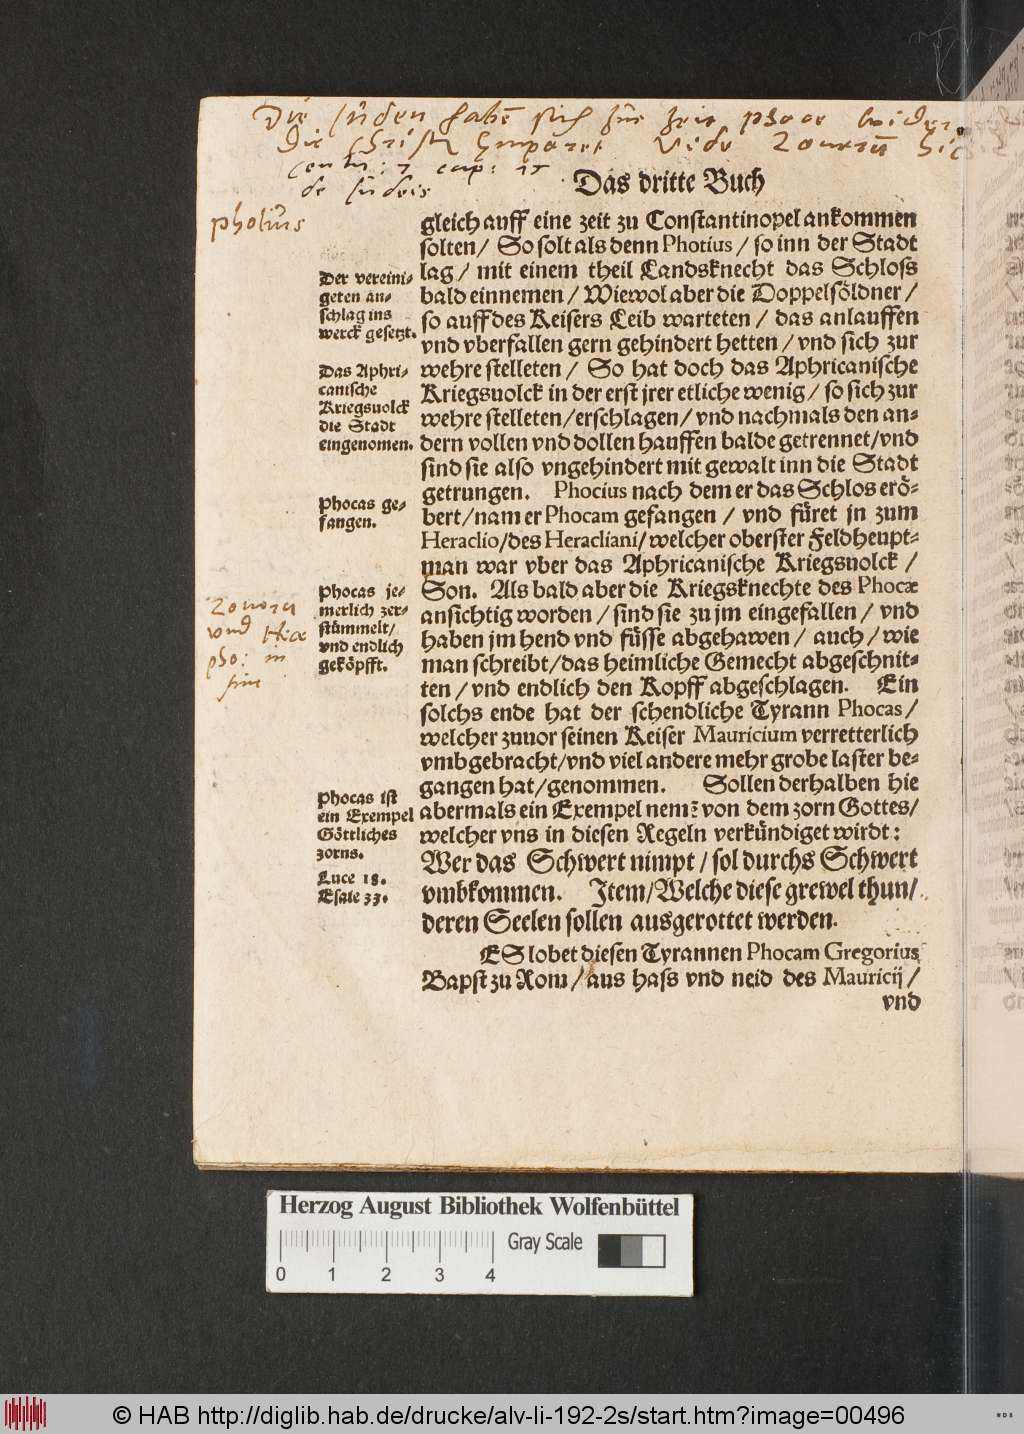 Die Juden habē sich zur zeit phocæ wider
die Christē
Vide
centu: 7 cap: 15
de Judeis
Das dritte Buch
photius
gleich auff eine zeit zu Constantinopel ankommen
solten / So solt als denn Photius / so inn der Stadt
lag / mit einem theil Landsknecht das Schloss
bald einnemen / Wiewol aber die Doppelsöldner /
so auff des Keisers Leib warteten / das anlauffen
vnd vberfallen gern gehindert hetten / vnd sich zur
wehre stelleten / So hat doch das Aphricanische
Kriegsuolck in der erst jrer etliche wenig / so sich zur
wehre stelleten / erschlagen / vnd nachmals den an⸗
dern vollen vnd dollen hauffen balde getrennet / vnd
sind sie also vngehindert mit gewalt inn die Stadt
getrungen. Phocius nach dem er das Schlos erö⸗
bert / nam er Phocam gefangen / vnd füret jn zum
Heraclio / des Heracliani / welcher oberster Feldheupt⸗
man war vber das Aphricanische Kriegsuolck /
Son. Als bald aber die Kriegsknechte des Phocæ
ansichtig worden / sind sie zu jm eingefallen / vnd
haben jm hend vnd füsse abgehawen / auch / wie
man schreibt / das heimliche Gemecht abgeschnit⸗
ten / vnd endlich den Kopff abgeschlagen. Ein
solchs ende hat der schendliche Tyrann Phocas /
welcher zuuor seinen Keiser Mauricium verretterlich
vmbgebracht / vnd viel andere mehr grobe laster be⸗
gangen hat / genommen. Sollen derhalben hie
abermals ein Exempel nemē von dem zorn Gottes /
welcher vns in diesen Regeln verkündiget wirdt :
Wer das Schwert nimpt / sol durchs Schwert
vmbkommen. Item / Welche diese grewel thun /
deren Seelen sollen ausgerottet werden.
ES lobet diesen Tyrannen Phocam Gregorius
Bapst zu Rom / aus hass vnd neid des Mauricij /
vnd
Der vereini⸗
geten an⸗
schlag ins
werck gesetzt.
Das Aphri⸗
canische
Kriegsuolck
die Stadt
eingenomen.
Phocas ge⸗
fangen.
Phocas je⸗
merlich zer⸗
stümmelt /
vnd endlich
geköpfft.
Phocas ist
ein Exempel
Göttliches
zorns.
Luce 18.
Esaie 33.
Herzog August Bibliothek Wolfenbüttel
Gray Scale
0 1 2 3 4
© HAB http://diglib.hab.de/drucke/alv-li-192-2s/start.htm?image=00496